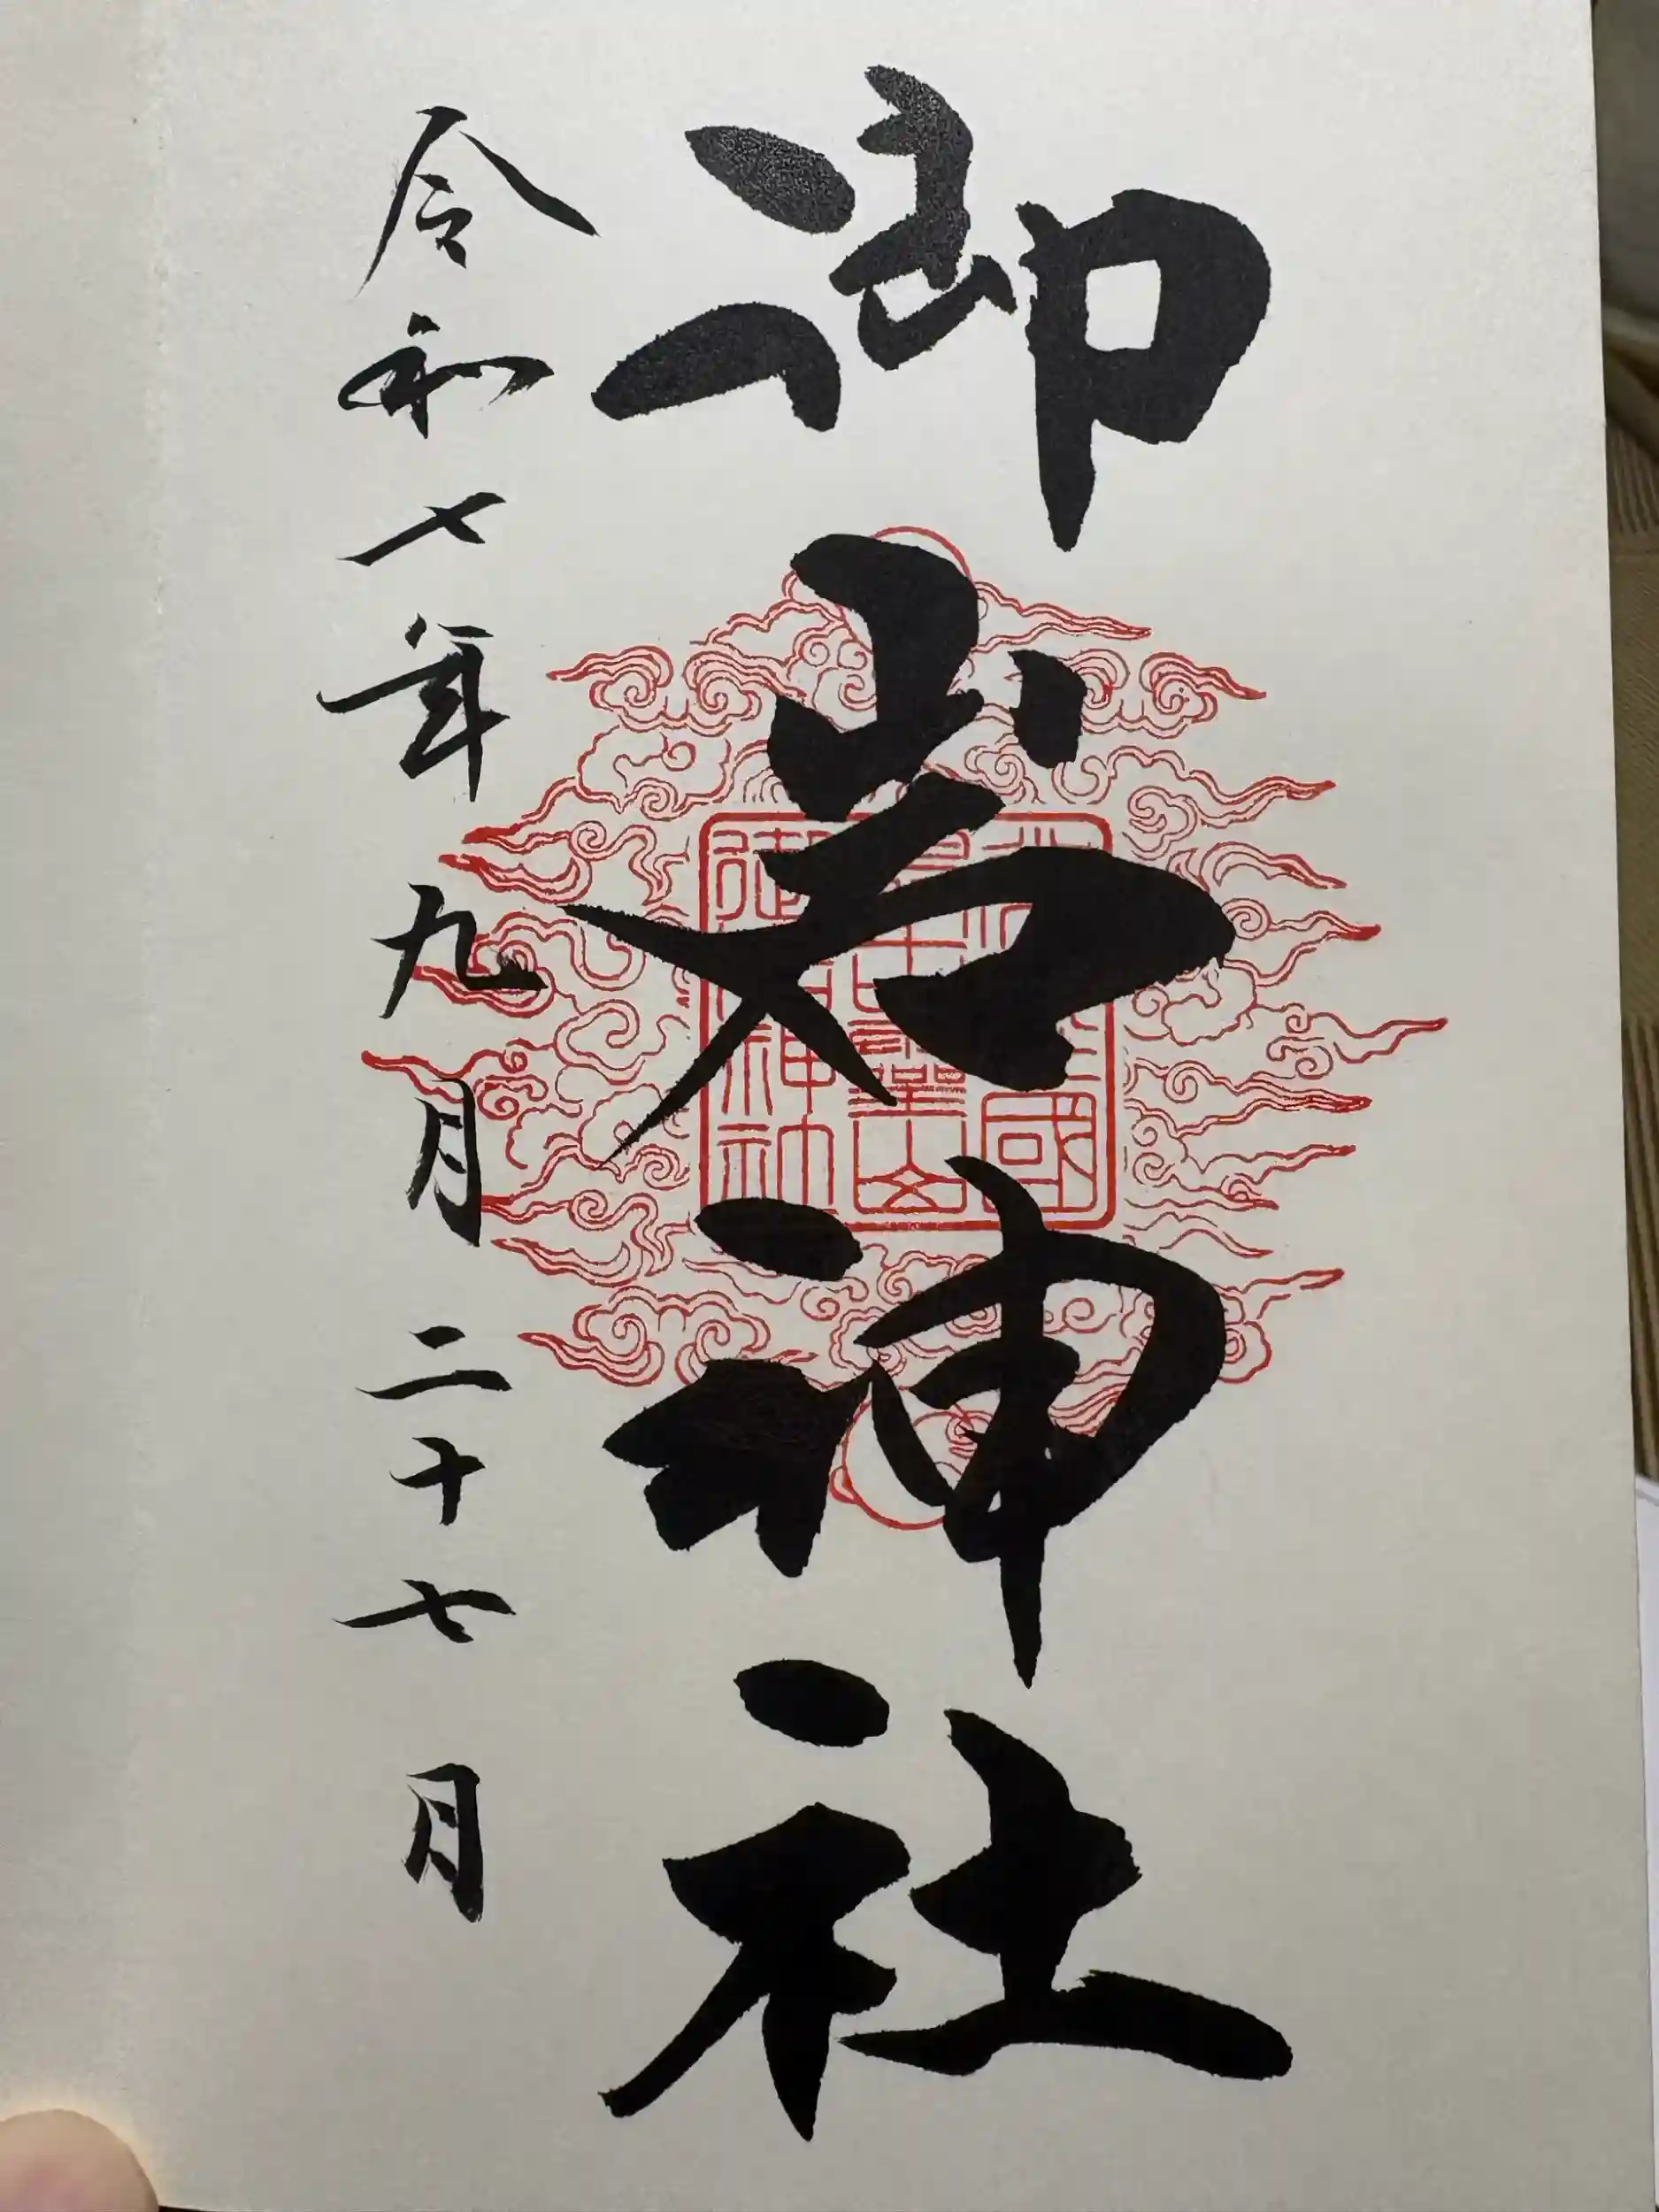 御岩神社
令和七年九月二十七日